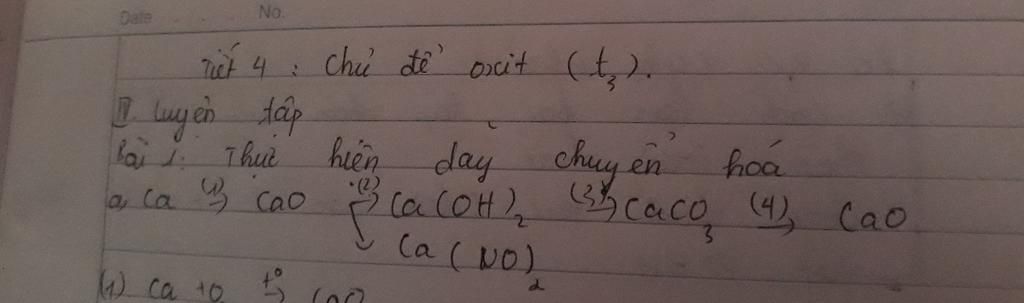 Date No.
Tiết 4 : Chủ đề oxit (t₃).
IV luyện tập
Bài 1: Thực hiện dãy chuyển hoá
a, Ca (1)→ CaO (2)→ Ca(OH)₂ (3)→ CaCO₃ (4)→ CaO
↘ Ca(NO)₂
(1) Ca + O t°→ CaO